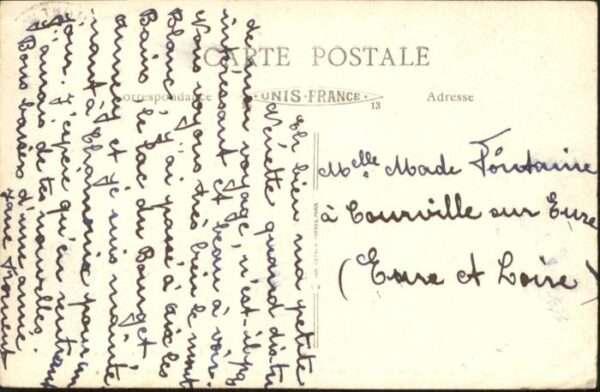 CARTE POSTALE
Correspondance
UNIS-FRANCE
13
Adresse
Eh bien ma petite
Nénette quand dis-tu
de mon voyage, n'est-il pas
intéressant et beau à voir.
Nous voyons très bien le mont
Blanc. J'ai passé à Aix les
Bains le lac du Bourget
annecy et je suis mainte
nant à Chamonix pour
jours. J'espère qu'en rentrant
J'aurais de tes nouvelles
Bons baisers d'une amie.
Froment
Melle Made Fontaine
à Courville sur Eure
(Eure et Loire)